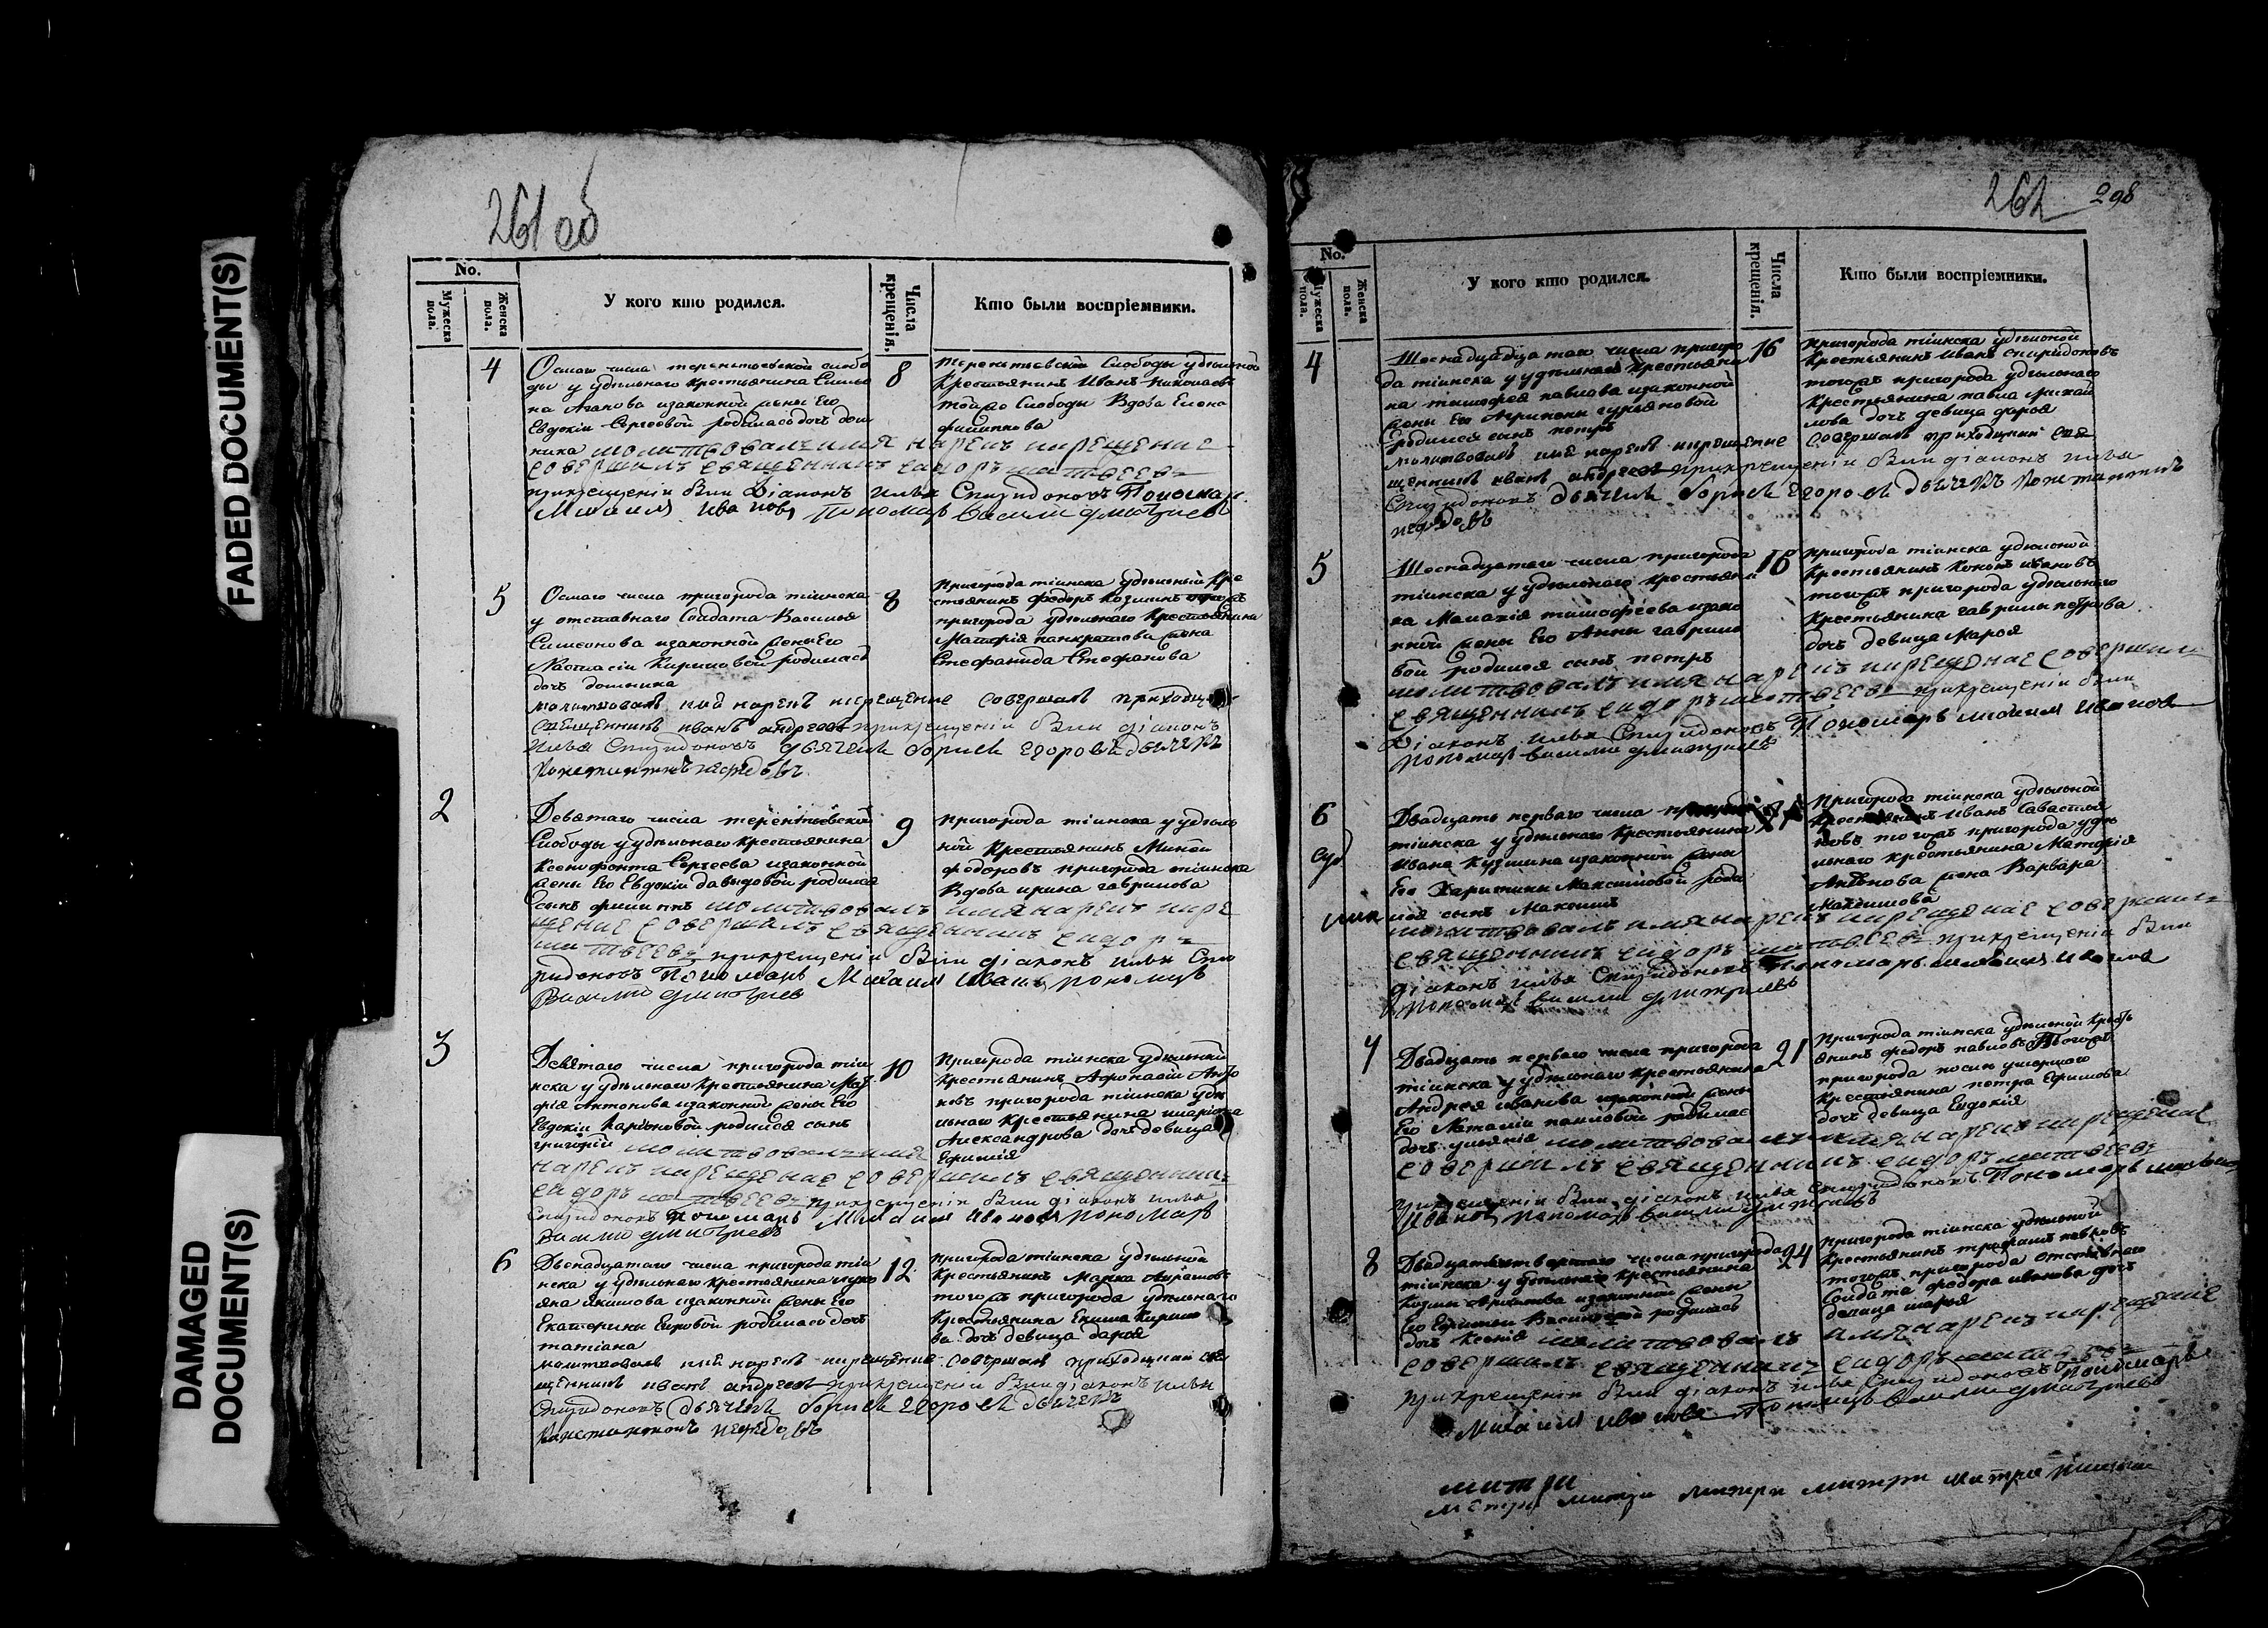 FADED DOCUMENT(S)
DAMAGED
DOCUMENT(S)
261 об
No.
Мужеска пола.
Женска пола.
У кого кто родился.
Числа крещенія.
Кто были воспріемники.
4
Осмаго числа терентьевской слобо
ды у удѣльнаго крестьянина Симио
на Агапова изаконной жены Его
Евдокіи Сергеевой родилась дочь дом
ника молитвовалъ имя нарекъ икрещение
совершилъ священникъ сидоръ матвеевъ
прикрещеніи были діаконъ илья Спиридоновъ Пономарь
Михаил Ивановъ Пономарь Васили дмитриевъ
8
терентьевской Слободы удѣльной
Крестьянинъ Иванъ Николаевъ
тойже Слободы Вдова Елена
филипова
5
Осмаго числа пригорода тіинска
у отставнаго Солдата Василья
Симеонова изаконной жены Его
Настасіи Кириловой родилась
дочь домника
молитвовалъ имя нарекъ икрещение совершалъ приходцкой
священникъ иванъ андреевъ прикрещеніи были діаконъ
илья Спиридоновъ дьячекъ борисъ Егоровъ дьячекъ
Константинъ нефедовъ
8
Пригорода тіинска удѣльный кре
стьянинъ федоръ козминъ
пригорода удѣльнаго Крестьянина
Матфія панкратова жена
Стефанида Стефанова
2
Девятаго числа терентьевской
Слободы у удѣльнаго крестьянина
Ксенофонта Сергеева изаконной
жены Его Евдокіи давыдовой родился
сынъ филиппъ молитвовалъ имя нарекъ икре
щение совершилъ священникъ сидоръ
матвеевъ прикрещеніи были діаконъ илья Спи
ридоновъ Пономарь Михаил Ивановъ пономарь
Васили дмитриевъ
9
пригорода тіинска удѣль
ной Крестьянинъ Миней
федоровъ пригорода тіинска
Вдова ирина гаврилова
3
Девятаго числа пригорода тіи
нска у удѣльнаго крестьянина Мат
фія Антонова изаконной жены Его
Евдокіи Карповой родился сынъ
григорій молитвовалъ имя
нарекъ икрещение совершилъ священникъ
сидоръ матвеевъ прикрещеніи были діаконъ илья
Спиридоновъ Пономарь Михаил Ивановъ пономарь
Васили дмитриевъ
10
Пригорода тіинска удѣльной
Крестьянинъ Афонасій Анто
новъ пригорода тіинска удѣ
льнаго крестьянина
Александрова дочь девица
Ефимія
6
Двенадцатаго числа пригорода тіи
нска у удѣльнаго крестьянина
якимова изаконной жены Его
Екатерины родилась дочь
татіана
молитвовалъ имя нарекъ икрещение совершалъ приходцкой свя
щенникъ иванъ андреевъ прикрещеніи были діаконъ илья
Спиридоновъ дьячекъ борисъ Егоровъ дьячекъ
Константинъ нефедовъ
12
пригорода тіинска удѣльной
Крестьянинъ Марка
тогожъ пригорода удѣльнаго
Крестьянина Кирило
ва дочь девица дарья
262
298
No.
Мужеска пола.
Женска пола.
У кого кто родился.
Числа крещенія.
Кто были воспріемники.
4
Шеснадцатаго числа пригоро
да тіинска у удѣльнаго крестьяни
на тимофея павлова изаконной
жены Его гурьяновой
родился сынъ петръ
молитвовалъ имя нарекъ икрещение совершалъ приходцкой свя
щенникъ иванъ андреевъ прикрещеніи были діаконъ илья
Спиридоновъ дьячекъ борисъ Егоровъ дьячекъ Константинъ
нефедовъ
16
пригорода тіинска удѣльной
Крестьянинъ Иванъ спиридоновъ
тогожъ пригорода удѣльнаго
Крестьянина павла михай
лова дочь девица дарья
5
Шеснадцатаго числа пригорода
тіинска у удѣльнаго крестьяни
на Малахія тимофеева изако
нной жены Его Анны гаврило
вой родился сынъ петръ
молитвовалъ имя нарекъ икрещение совершилъ
священникъ сидоръ матвеевъ прикрещеніи были
Діаконъ илья Спиридоновъ Пономарь михаил Иванов
пономарь васили дмитриевъ
16
пригорода тіинска удѣльной
Крестьянинъ Кононъ ивановъ
тогожъ пригорода удѣльнаго
Крестьянина гаврилы петрова
дочь девица Марья
6
Двадцать перваго числа
тіинска у удѣльнаго крестьянина
ивана Кузмина изаконной жены
Его Харитины Максимовой роди
лся сынъ Максимъ
молитвовалъ имя нарекъ икрещение совершилъ
священникъ сидоръ матвеевъ прикрещеніи были
діаконъ илья Спиридоновъ Пономарь михаил Иванов
пономарь васили дмитриевъ
Пригорода тіинска удѣльной
Крестьянинъ Иванъ Савастья
новъ тогожъ пригорода удѣ
льнаго крестьянина Матфія
Антонова жена Варвара
Максимова
7
Двадцать перваго числа пригорода
тіинска у удѣльнаго крестьянина
Андрея иванова изаконной жены
Его Наталіи родилась
дочь ульянія молитвовалъ имя нарекъ икрещение
совершилъ священникъ сидоръ матвеевъ
прикрещеніи были діаконъ илья Спиридоновъ Пономарь михаил
Ивановъ пономарь васили дмитриевъ
21
Пригорода тіинска удѣльной Кресть
янинъ федоръ павловъ тогожъ
пригорода умершаго
Крестьянина петра Ефимова
дочь девица Евдокія
8
Двадцать четвертаго числа пригорода
тіинска у удѣльнаго крестьянина
Козмы изаконной жены
Его Ефимьи Васильевой родилась
дочь Ксенія молитвовалъ имя нарекъ икрещение
совершилъ священникъ сидоръ матвеевъ
прикрещеніи были діаконъ илья Спиридоновъ Пономарь
Михаил Ивановъ Пономарь васили дмитриевъ
24
пригорода тіинска удѣльной
Крестьянинъ
тогожъ пригорода отставнаго
Солдата федора иванова дочь
девица марья